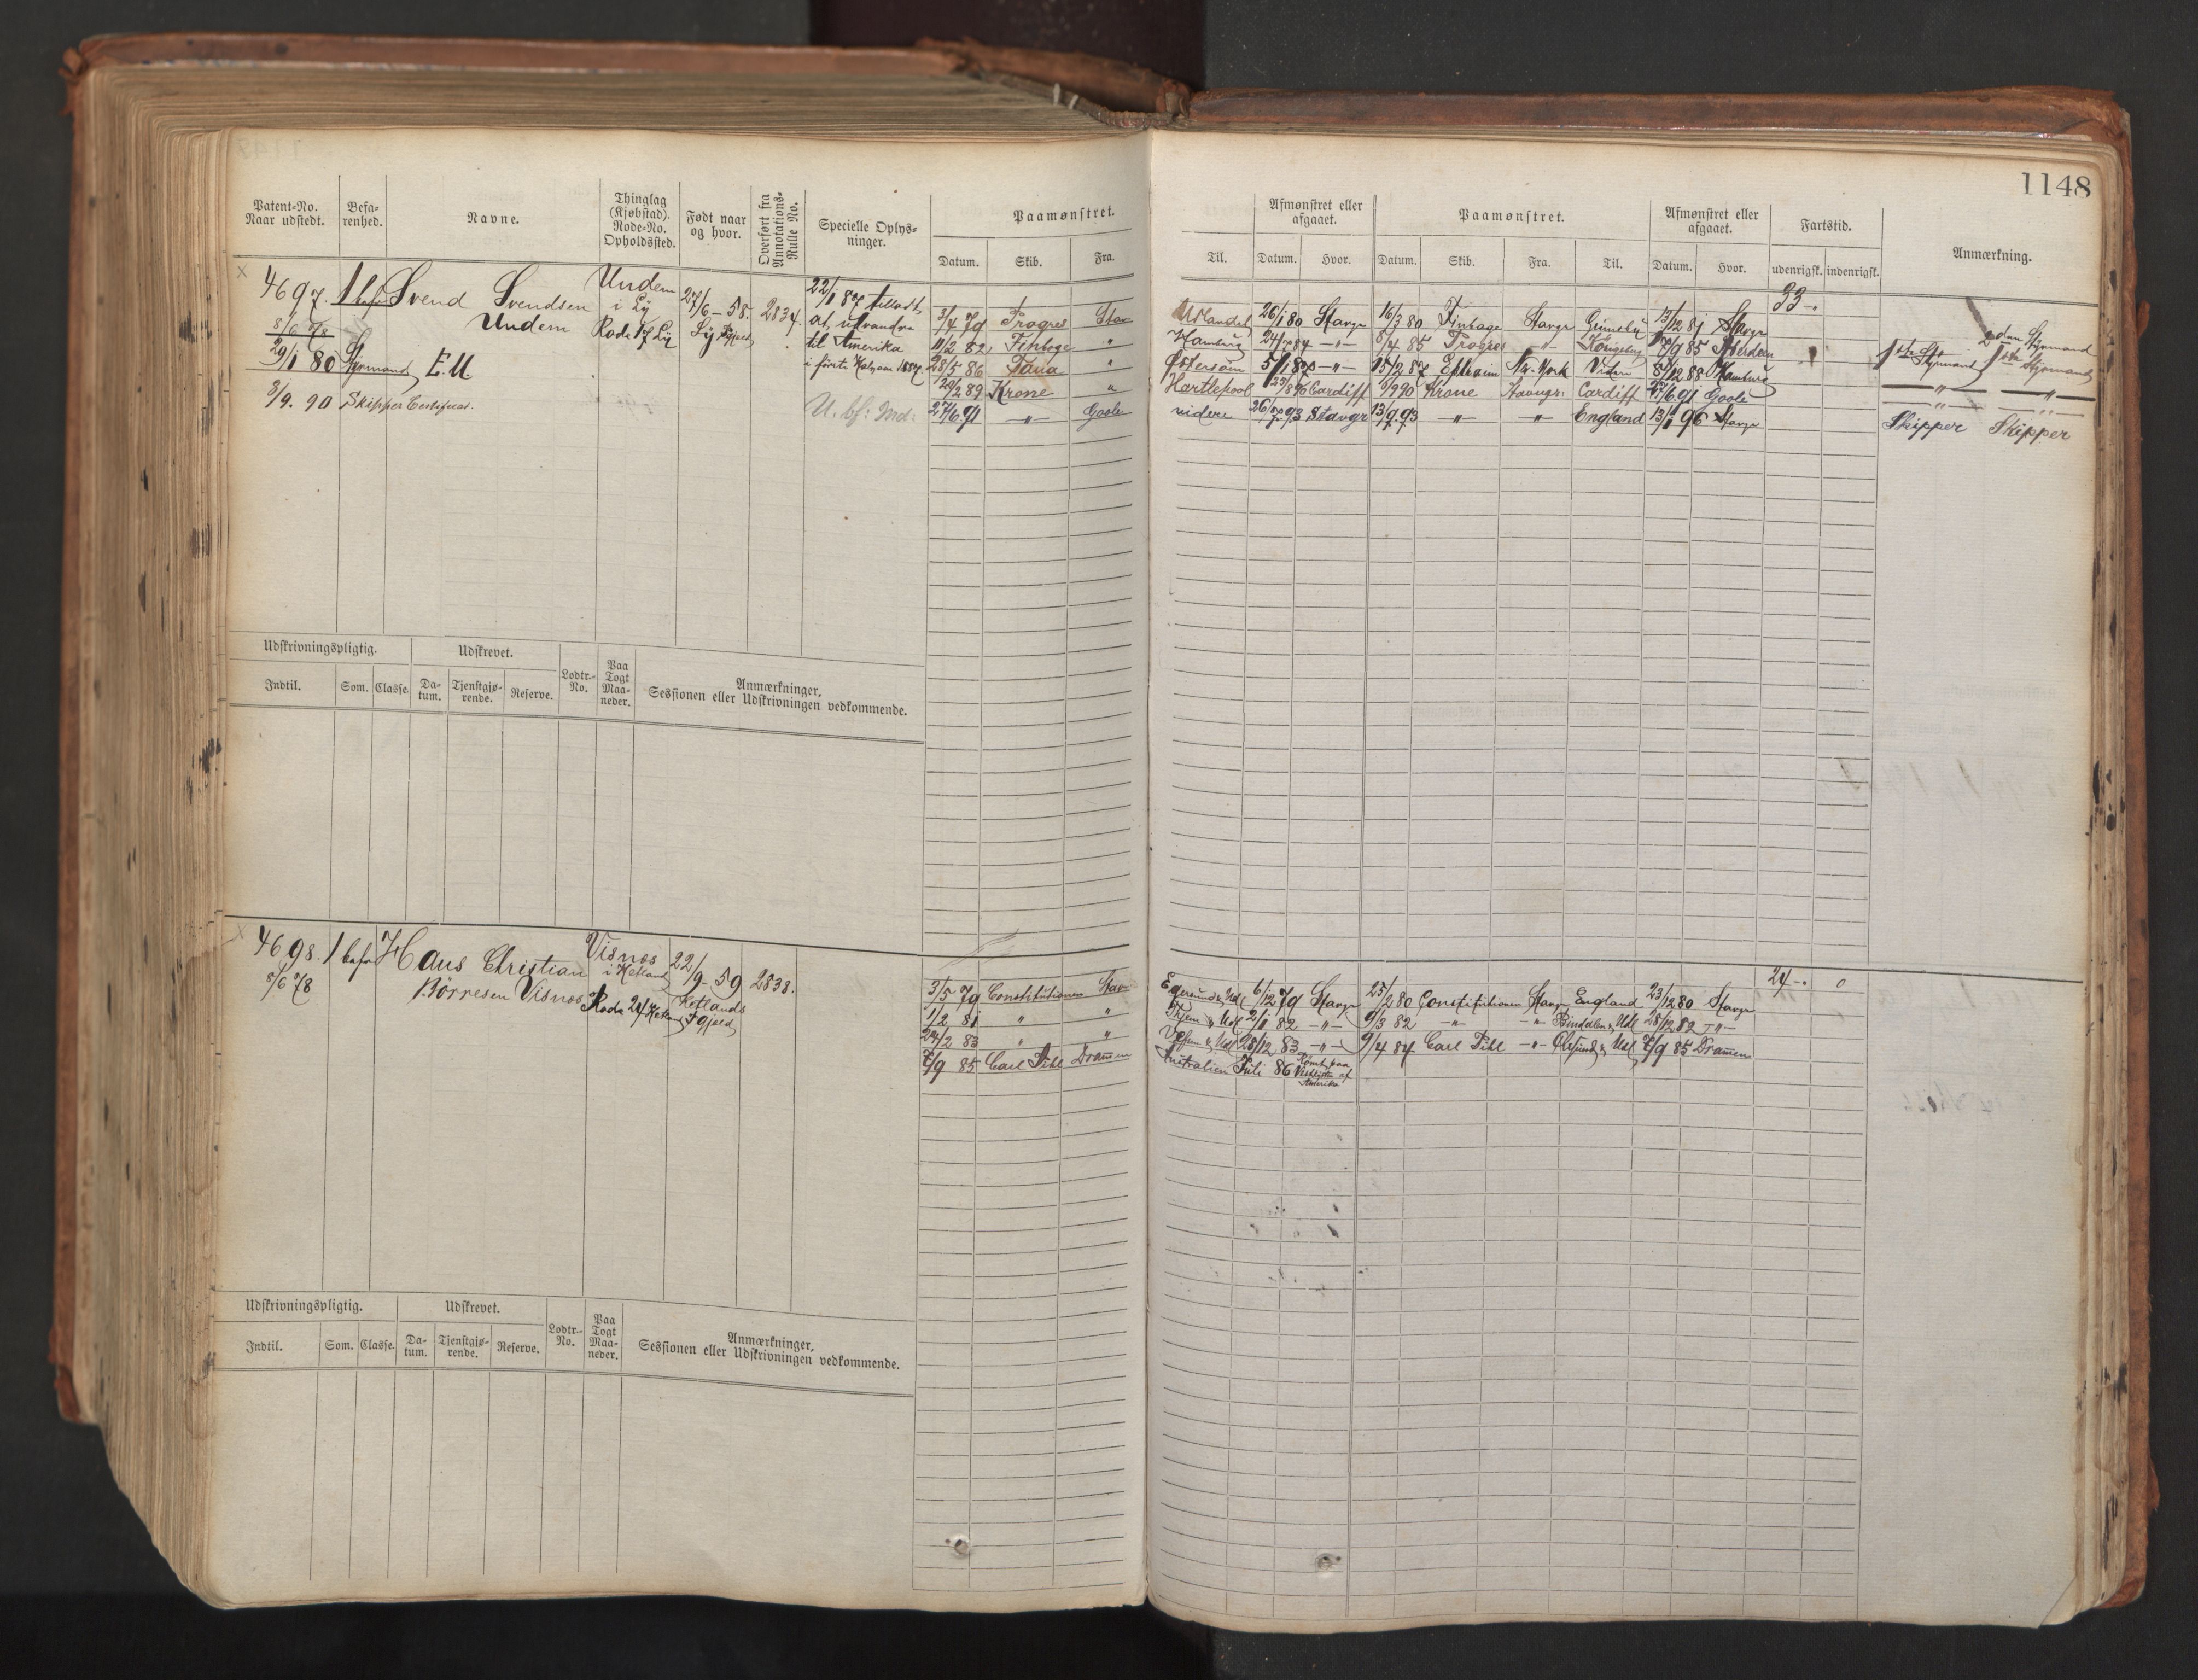 1148
Patent-No. Naar udstedt.
Befa-renhed.
Navne.
Thinglag (Kjøbstad). Rode-No. Opholdssted.
Født naar og hvor.
Overført fra Annotations-Rulle No.
Specielle Oplys-ninger.
Paamønstret.
Datum. Skib. Fra.
Til.
Afmønstret eller afgaaet.
Datum. Hvor.
Paamønstret.
Datum. Skib. Fra. Til.
Afmønstret eller afgaaet.
Datum. Hvor.
Fartstid.
udenrigsk. indenrigsk.
Anmærkning.
4697. 1 bef Svend Svendsen
Undem
8/6 78
29/1 80 Styrmand E.M.
3/9. 90 Skipper Certificat.
Undem
i Lÿ
Rode 17 Lÿ
27/6-58.
2834.
22/1 87 tilladt
at udvandre
til Amerika
i første Halvaar 1887
3/4 79 Progres Stav
11/2 82 Finhage "
28/5 86 "
29/2 89 Krone "
27/6 91 -"- Goole
Udlandet 26/1 80 Stavgr 16/3 80 Finhage Stavgr Grimsby 13/12 81 Stavgr
Hamburg 24/7 84 -"- 8/4 85 Progres -"-
Østersøen 5/1 87 -"- 15/2 87 Ephraim Nw. York Videre 8/12 88 Hamburg
Hartlepool Cardiff Krone Stavngr: Cardiff 27/6 91 Goole
videre 26/7 93 Stavgr 13/9.93 -"- -"- England 13/1 96 Stavgr
33-.
2den Styrmand
1ste Styrmand 1ste Styrmand
-"- -"-
-"- -"-
Skipper Skipper
Udskrivningspligtig. Udskrevet.
Lodtr.-No.
Paa Togt Maa-neder.
Anmærkninger,
Sessionen eller Udskrivningen vedkommende.
Indtil. Som. Classe. Da-tum. Tjenstgjø-rende. Reserve.
4698. 1 befr Hans Christian
Börresen Visnes
8/6 78
Visnes
i Hetland
Rode 24 Hetland
22/9-59
Hetlands
Pgjeld
2838.
3/5 79 Constitutionen Stav
1/2 81 " "
24/2 83 " "
7/9 85 Carl Pihl Drammen
Egersund & Udl 6/12 79 Stavgr 25/2 80 Constitutionen Stavgr England 23/12 80 Stavgr
2/1 82 -"- 9/3 82 -"- -"- Bindalen & Udl 28/12 82 -"-
28/12 83 -"- 9/4 84 Carl Pihl -"- 7/9 85 Drammen
Australien Juli 86 Rømt paa
Vestkysten af
Amerika
24-. 0
Udskrivningspligtig. Udskrevet.
Lodtr.-No.
Paa Togt Maa-neder.
Anmærkninger,
Sessionen eller Udskrivningen vedkommende.
Indtil. Som. Classe. Da-tum. Tjenstgjø-rende. Reserve.